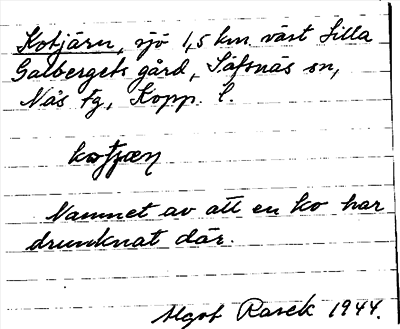 Kotjärn, sjö 1,5 km. väst Lilla
Galbergets gård, Säfsnäs sn,
Nås tg, Kopp. l.
Namnet av att en ko har
drunknat där.
Algot Rasek 1944.